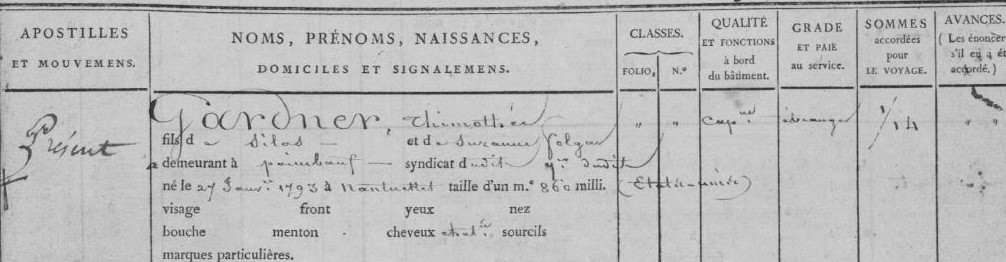 APOSTILLES
ET MOUVEMENS.
NOMS, PRÉNOMS, NAISSANCES,
DOMICILES ET SIGNALEMENS.
CLASSES.
FOLIO,
N.º
QUALITÉ
ET FONCTIONS
à bord
du bâtiment.
GRADE
ET PAIE
au service.
SOMMES
accordées
pour
LE VOYAGE.
AVANCES.
( Les énoncer
s'il en a été
accordé. )
Présent
Gardner, Thimothée " " Capne étranger 1/14 " "
fils de Silas — et de Suzanne Folger
demeurant à paimbœuf — syndicat dudit qer dudit
né le 27 Janvr 1793 à Nantuket taille d'un m.e 860 milli. (Etats-unis)
visage front yeux nez
bouche menton cheveux sourcils
marques particulières.